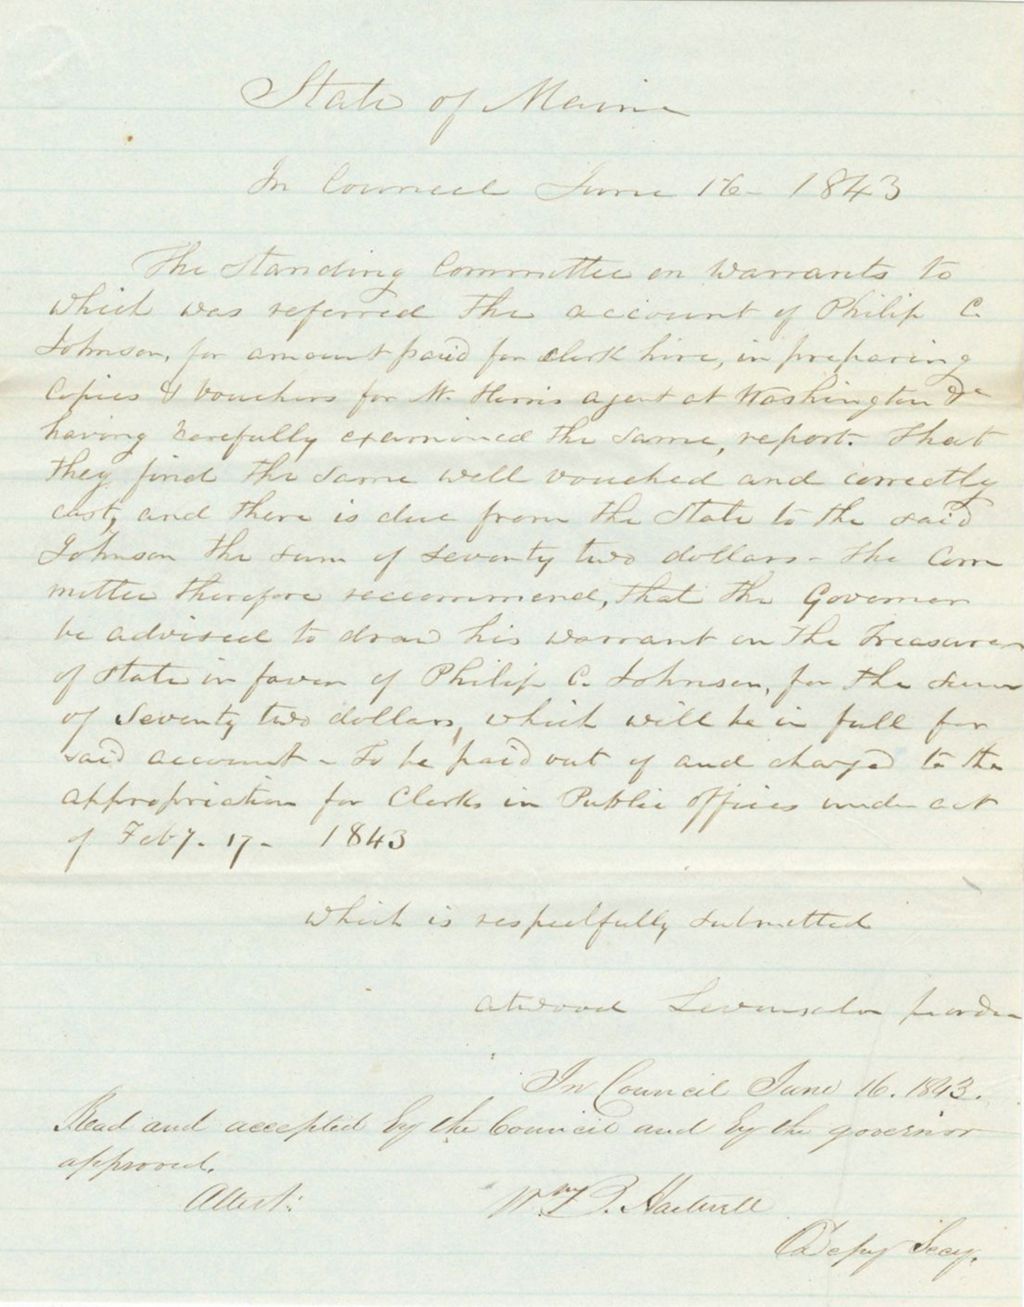 State of Maine
In Council June 16 - 1843
The Standing Committee on Warrants to
which was referred the account of Philip C.
Johnson, for amount paid for clerk hire, in preparing
Copies & Vouchers for M. Harris agent at Washington &c
having carefully examined the same, report. That
they find the same well vouched and correctly
cast, and there is due from the State to the said
Johnson the sum of seventy two dollars - The Com
mittee therefore reccommend, that the Governor
be advised to draw his warrant on the Treasurer
of State in favor of Philip C. Johnson, for the sum
of Seventy two dollars, which will be in full for
said account - To be paid out of and charged to the
appropriation for Clerks in Public offices under act
of Feby. 17 - 1843
which is respectfully submitted
Atwood Levensaler
In Council June 16. 1843.
Read and accepted by the Council and by the governor
approved.
Attest:
Wm B. Hartwell
Depy Secy.